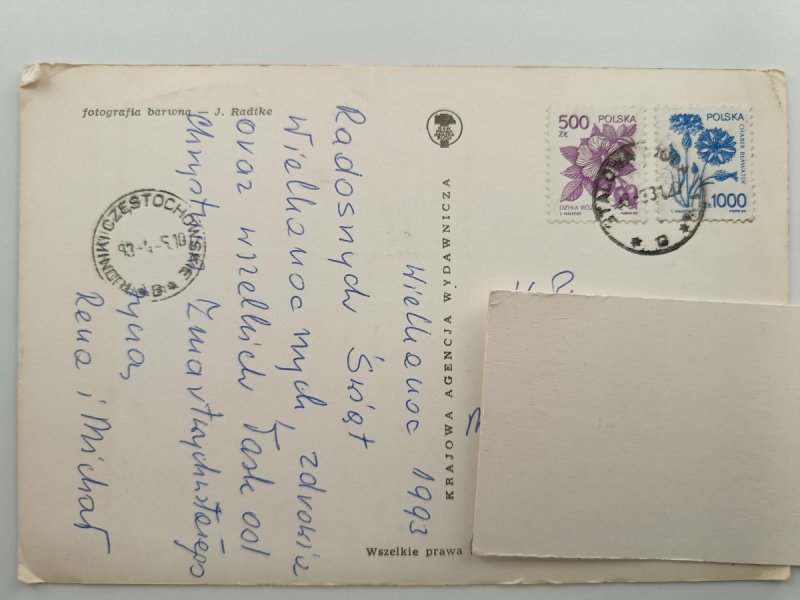 fotografia barwna — J. Radtke
Wielkanoc 1993
Radosnych Świąt
Wielkanocnych, zdrowia
oraz wszelkich Łask od
Chrystusa Zmartwychwstałego
życzą
Rena i Michał
RUDNIKI CZĘSTOCHOWSKIE
93-4-5.10
* B *
KRAJOWA AGENCJA WYDAWNICZA
Wszelkie prawa
500 ZŁ
POLSKA
DZIKA RÓŻA
POLSKA
CHABER BŁAWATEK
1000
STALOWA